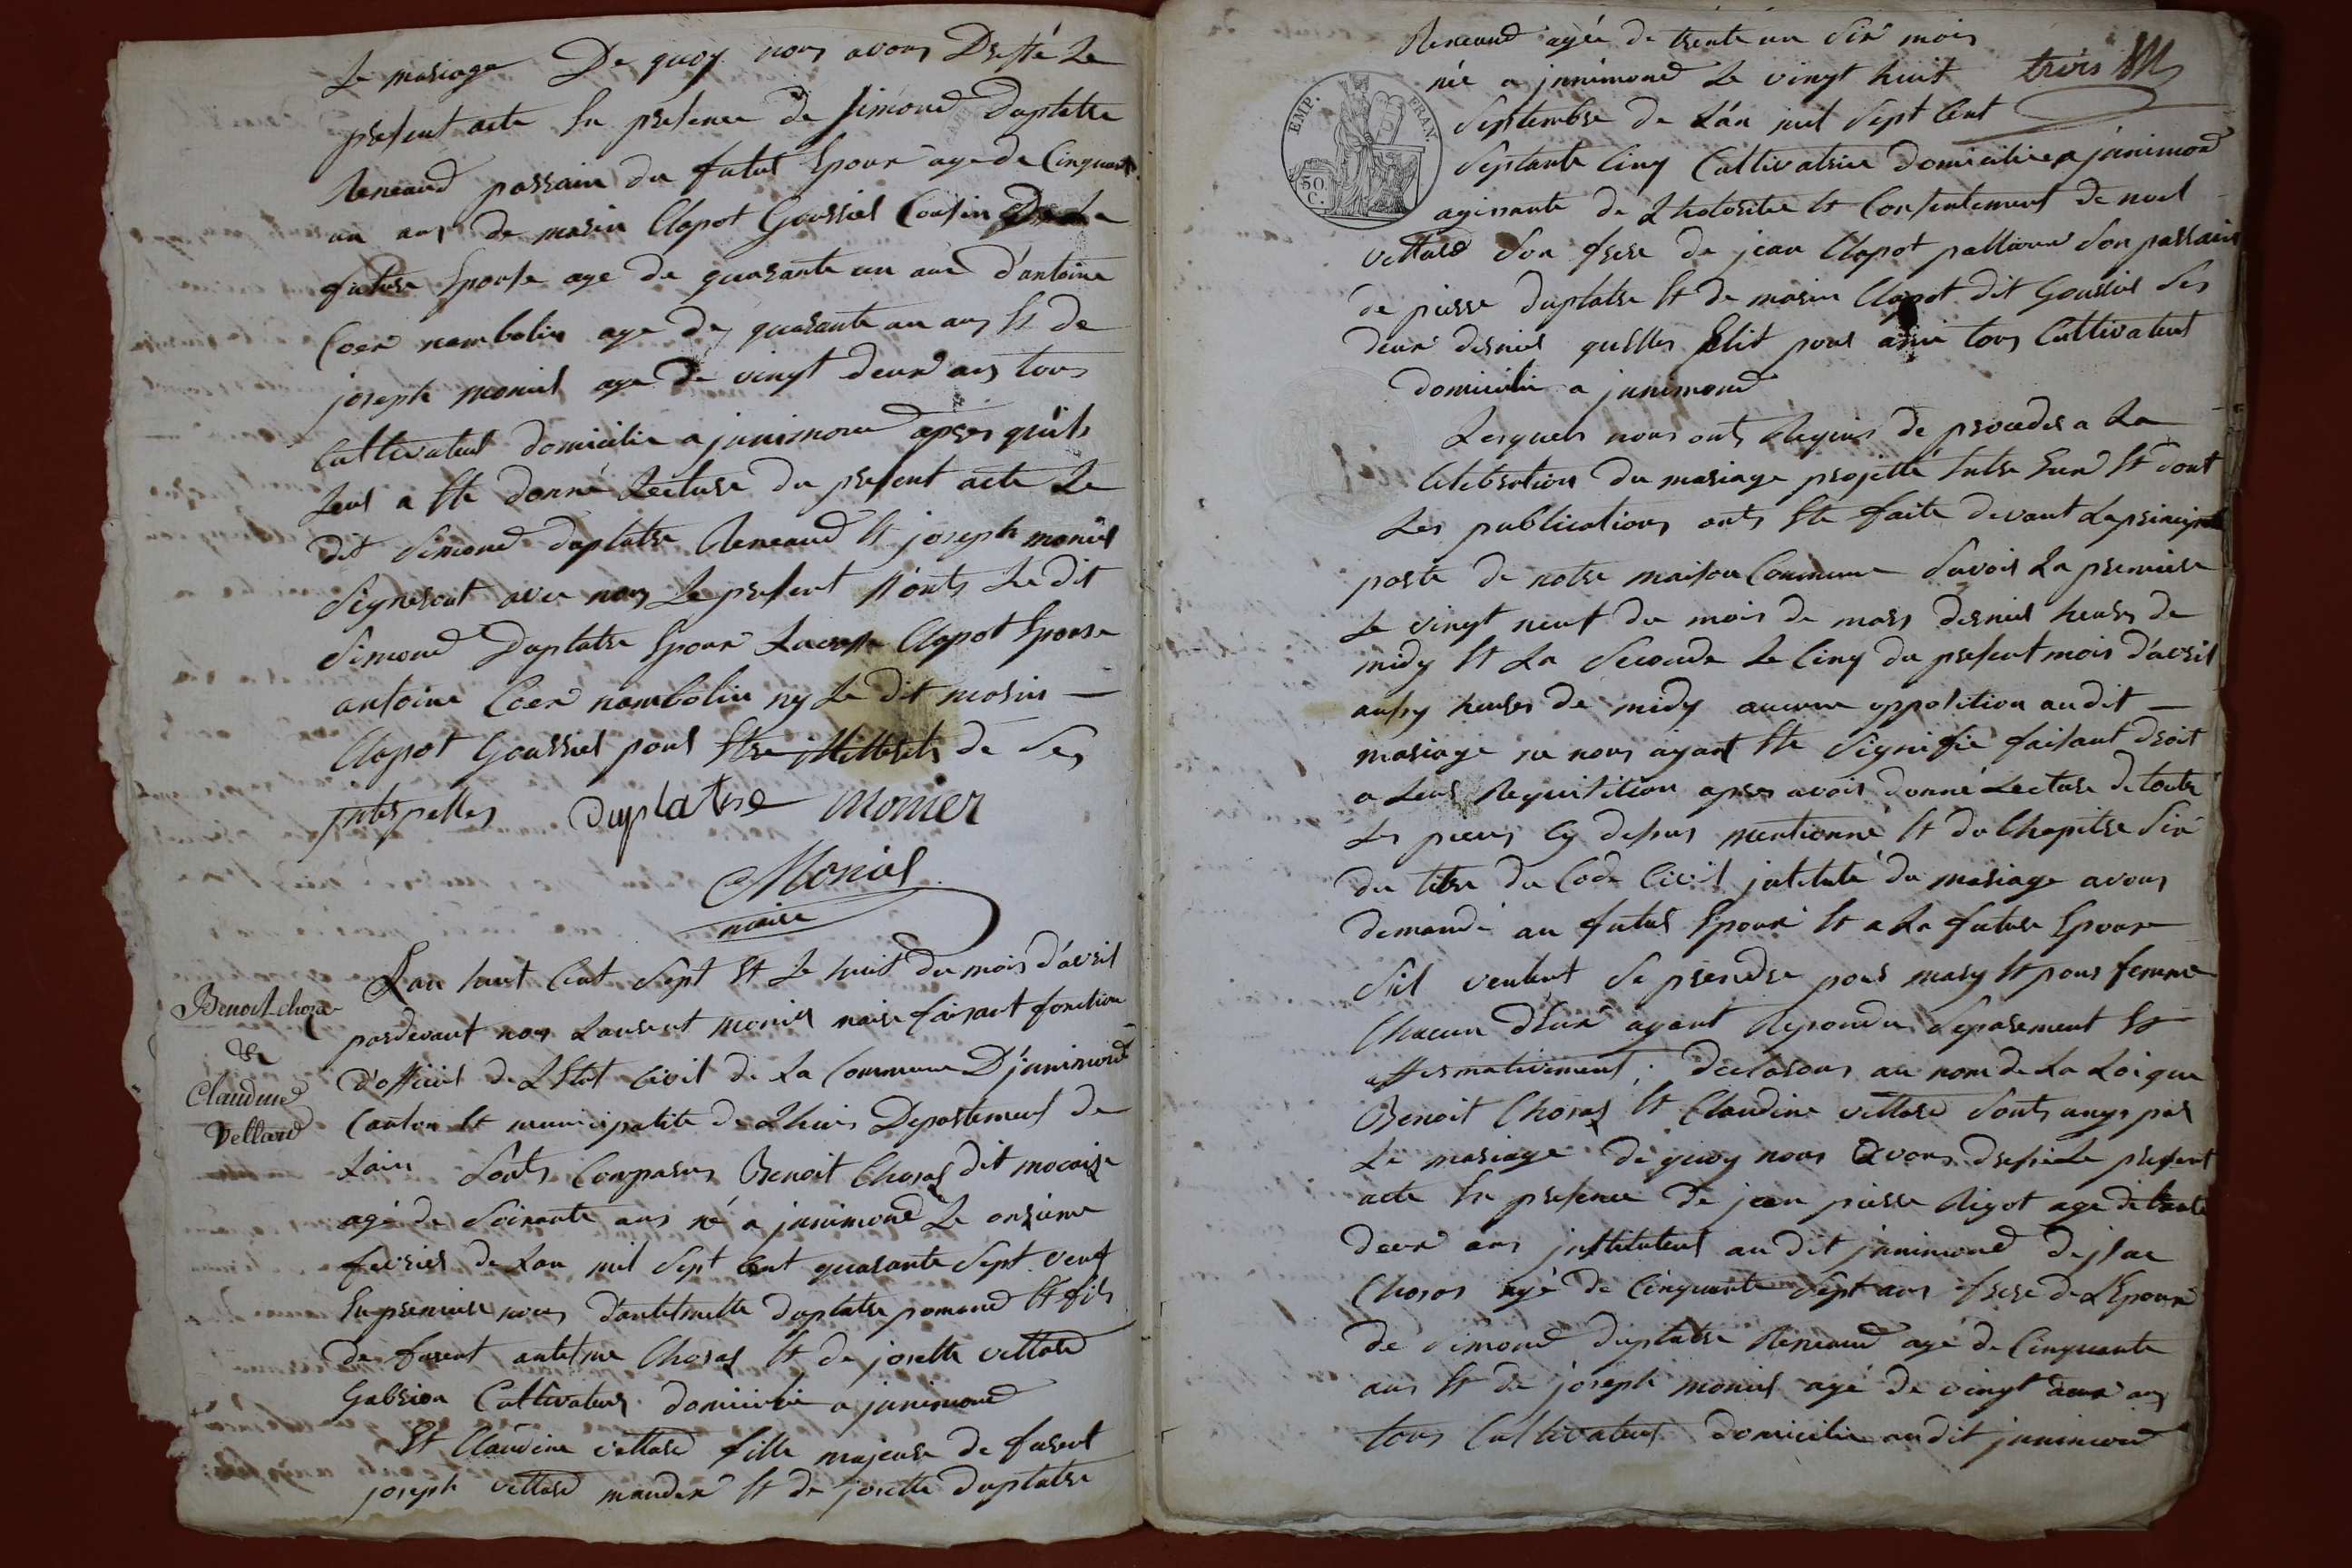 Le mariage De quoy nous avons Dressé Le
present acte En presence de Simond Duplatre
Reneaud parrain du futur Epoux age de Cinquante
un ans de marin Clapot Goussier Cousin De La
future Epouse age de quarante un ans d'antoine
Coer nambolin age de quarante un ans Et de
joseph monier age de vingt deux ans tous
Cultivateur domicilie a jnnimond apres qu'ils
Leur a Ete donné Lecture du present acte Le
dit Simond duplatre Reneaud Et joseph monier
Signeront avec nous Le present N'onts Le dit
Simond Duplatre Epoux Clapot Epouse
antoine Coer nambolin ny Le dit marin —
Clapot Goussier pour Etre Illiterets de Ses
jnterpelles duplatre monier
Monier
maire
Benoit choraz
&
Claudine
Vellard
L'an huit Cent Sept Et Le huit du mois d'avril
pardevant nous Laurent monier maire faisant fonction
d'officier de L'Etat Civil de La Commune D'jnnimond
Canton Et municipalite de Lhuis Departement de
Lain Sonts Comparus Benoit Choraz dit
agé de Soixante ans né a jnnimond Le onzieme
fevrier de Lan mil Sept Cent quarante Sept veuf
En premiere noces d'antelmette duplatre pomond Et fils
de furent antelme Choraz Et de josette vellard
Gabrion Cultivateur domicilie a jnnimond
Et Claudine vellard fille majeure de furent
joseph vellard mandex Et de josette Duplatre
Reneaud agée de trente un Six mois
née a jnnimond Le vingt huit trois M
Septembre de L'an mil Sept Cent
EMP. FRAN.
50 C.
Septante Cinq Cultivatrice domiciliee a jnnimond
agissante de Lhotoritee Et Consentement de noel
vellard Son frere de jean Clapot Son parrain
de pierre duplatre Et de marin Clapot dit Goussier Ses
deux dernier quelles Elit pour amis tous Cultivateur
domicilie a jnnimond
Lesquels nous onts Requis de proceder a La
Celebration du mariage projetté Entre Eux Et dont
Les publications onts Ete faite devant La principale
porte de notre maison Commune Savoir La premiere
Le vingt neuf du mois de mars dernier heures de
midy Et La Seconde Le Cinq du present mois d'avril
aussy heures de midy aucune opposition audit —
mariage ne nous ayant Ete Signifié faisant droit
a Leur Requisition apres avoir donné Lecture de toute
Les pieces Cy dessus mentionné Et du Chapitre Six
du titre du Code Civil jntitulé du mariage avons
demandé au futur Epoux Et a La future Epouse
S'il veulent Se prendre pour mary Et pour femme
Chacun d'Eux ayant Repondu Separement Et
affirmativement ; declarons au nom de La Loi que
Benoit Choraz Et Claudine vellard Sonts unys par
Le mariage de quoy nous avons dressé Le present
acte En presence de jean pierre Rigot age de trente
deux ans jnstituteur au dit jnnimond d'jsac
Choras agé de Cinquante Sept ans frere de L'Epoux
de Simond duplatre Reneaud agé de Cinquante
ans Et de joseph monier agé de vingt deux ans
tous Cultivateur domicilie audit jnnimond